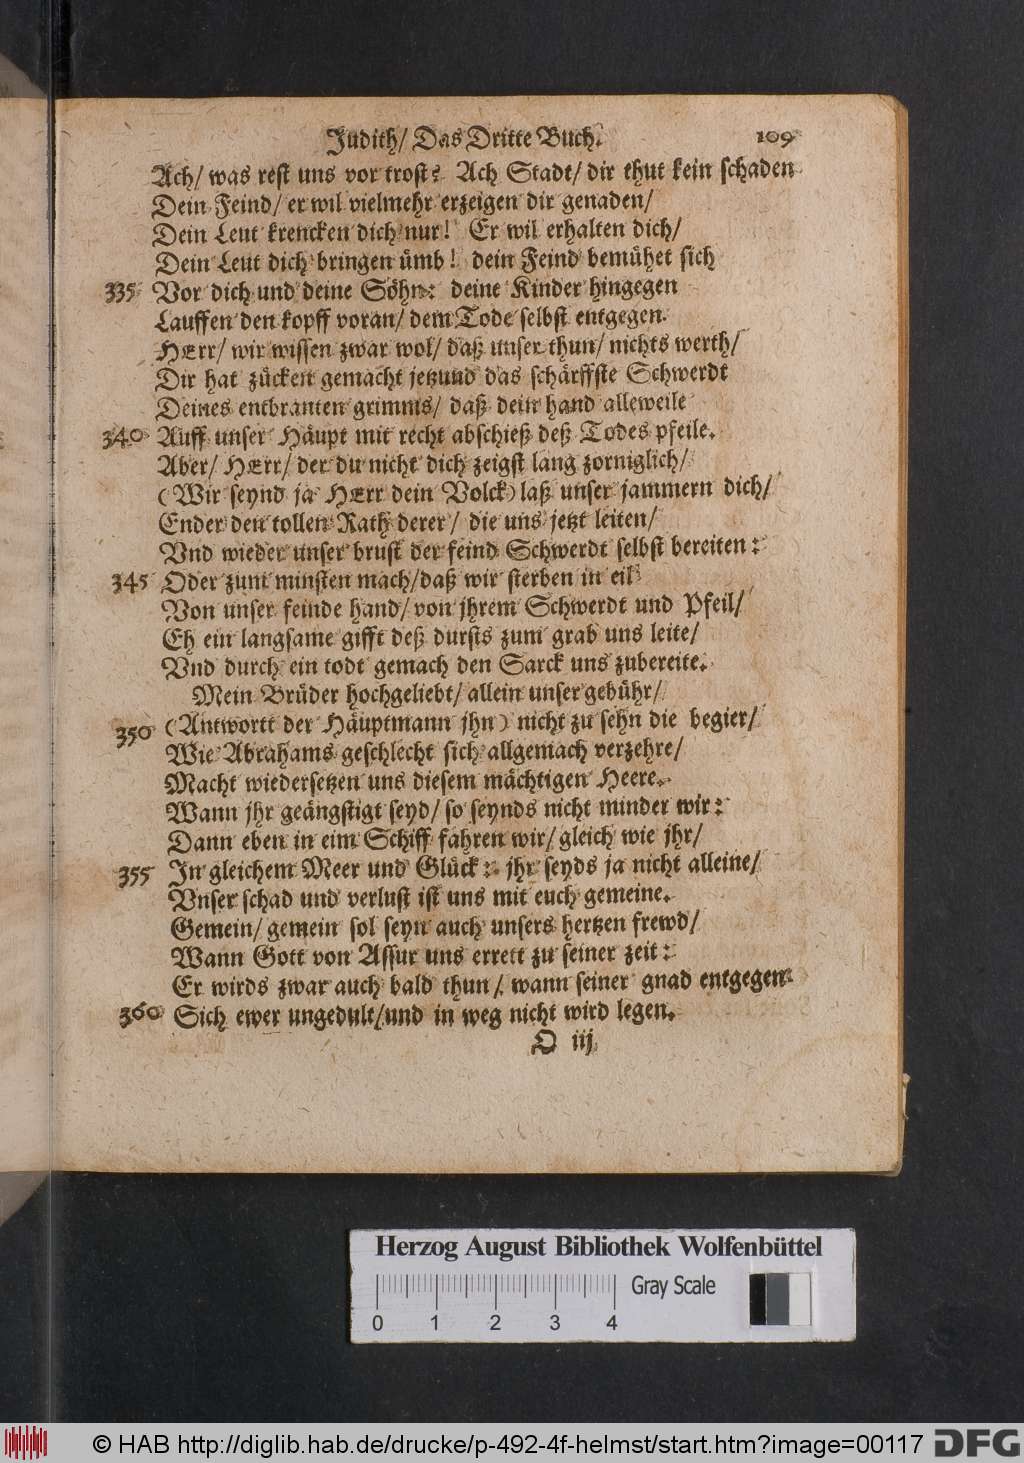 Judith/ Das Dritte Buch. 109
Ach/ was rest uns vor trost? Ach Stadt/ dir thut kein schaden
Dein Feind/ er wil vielmehr erzeigen dir genaden/
Dein Leut krencken dich nur! Er wil erhalten dich/
Dein Leut dich bringen ümb! dein Feind bemühet sich
335 Vor dich und deine Söhn: deine Kinder hingegen
Lauffen den kopff voran/ dem Tode selbst entgegen.
HErr/ wir wissen zwar wol/ daß unser thun/ nichts werth/
Dir hat zücken gemacht jetzund das schärffste Schwerdt
Deines entbranten grimms/ daß dein hand alleweile
340 Auff unser Häupt mit recht abschieß deß Todes pfeile.
Aber/ HErr/ der du nicht dich zeigst lang zorniglich/
(Wir seynd ja HErr dein Volck) laß unser jammern dich/
Ender den tollen Rath derer/ die uns jetzt leiten/
Vnd wieder unser brust der feind Schwerdt selbst bereiten:
345 Oder zum minsten mach/ daß wir sterben in eil
Von unser feinde hand/ von jhrem Schwerdt und Pfeil/
Eh ein langsame gifft deß dursts zum grab uns leite/
Vnd durch ein todt gemach den Sarck uns zubereite.
Mein Brüder hochgeliebt/ allein unser gebühr/
350 (Antwortt der Häuptmann jhn) nicht zu sehn die begier/
Wie Abrahams geschlecht sich allgemach verzehre/
Macht wiedersetzen uns diesem mächtigen Heere.
Wann jhr geängstigt seyd/ so seynds nicht minder wir:
Dann eben in eim Schiff fahren wir/ gleich wie jhr/
355 In gleichem Meer und Glück: jhr seyds ja nicht alleine/
Vnser schad und verlust ist uns mit euch gemeine.
Gemein/ gemein sol seyn auch unsers hertzen frewd/
Wann Gott von Assur uns errett zu seiner zeit:
Er wirds zwar auch bald thun/ wann seiner gnad entgegen
360 Sich ewer ungedult/ und in weg nicht wird legen.
O iij
Herzog August Bibliothek Wolfenbüttel
Gray Scale
0 1 2 3 4
© HAB http://diglib.hab.de/drucke/p-492-4f-helmst/start.htm?image=00117 DFG